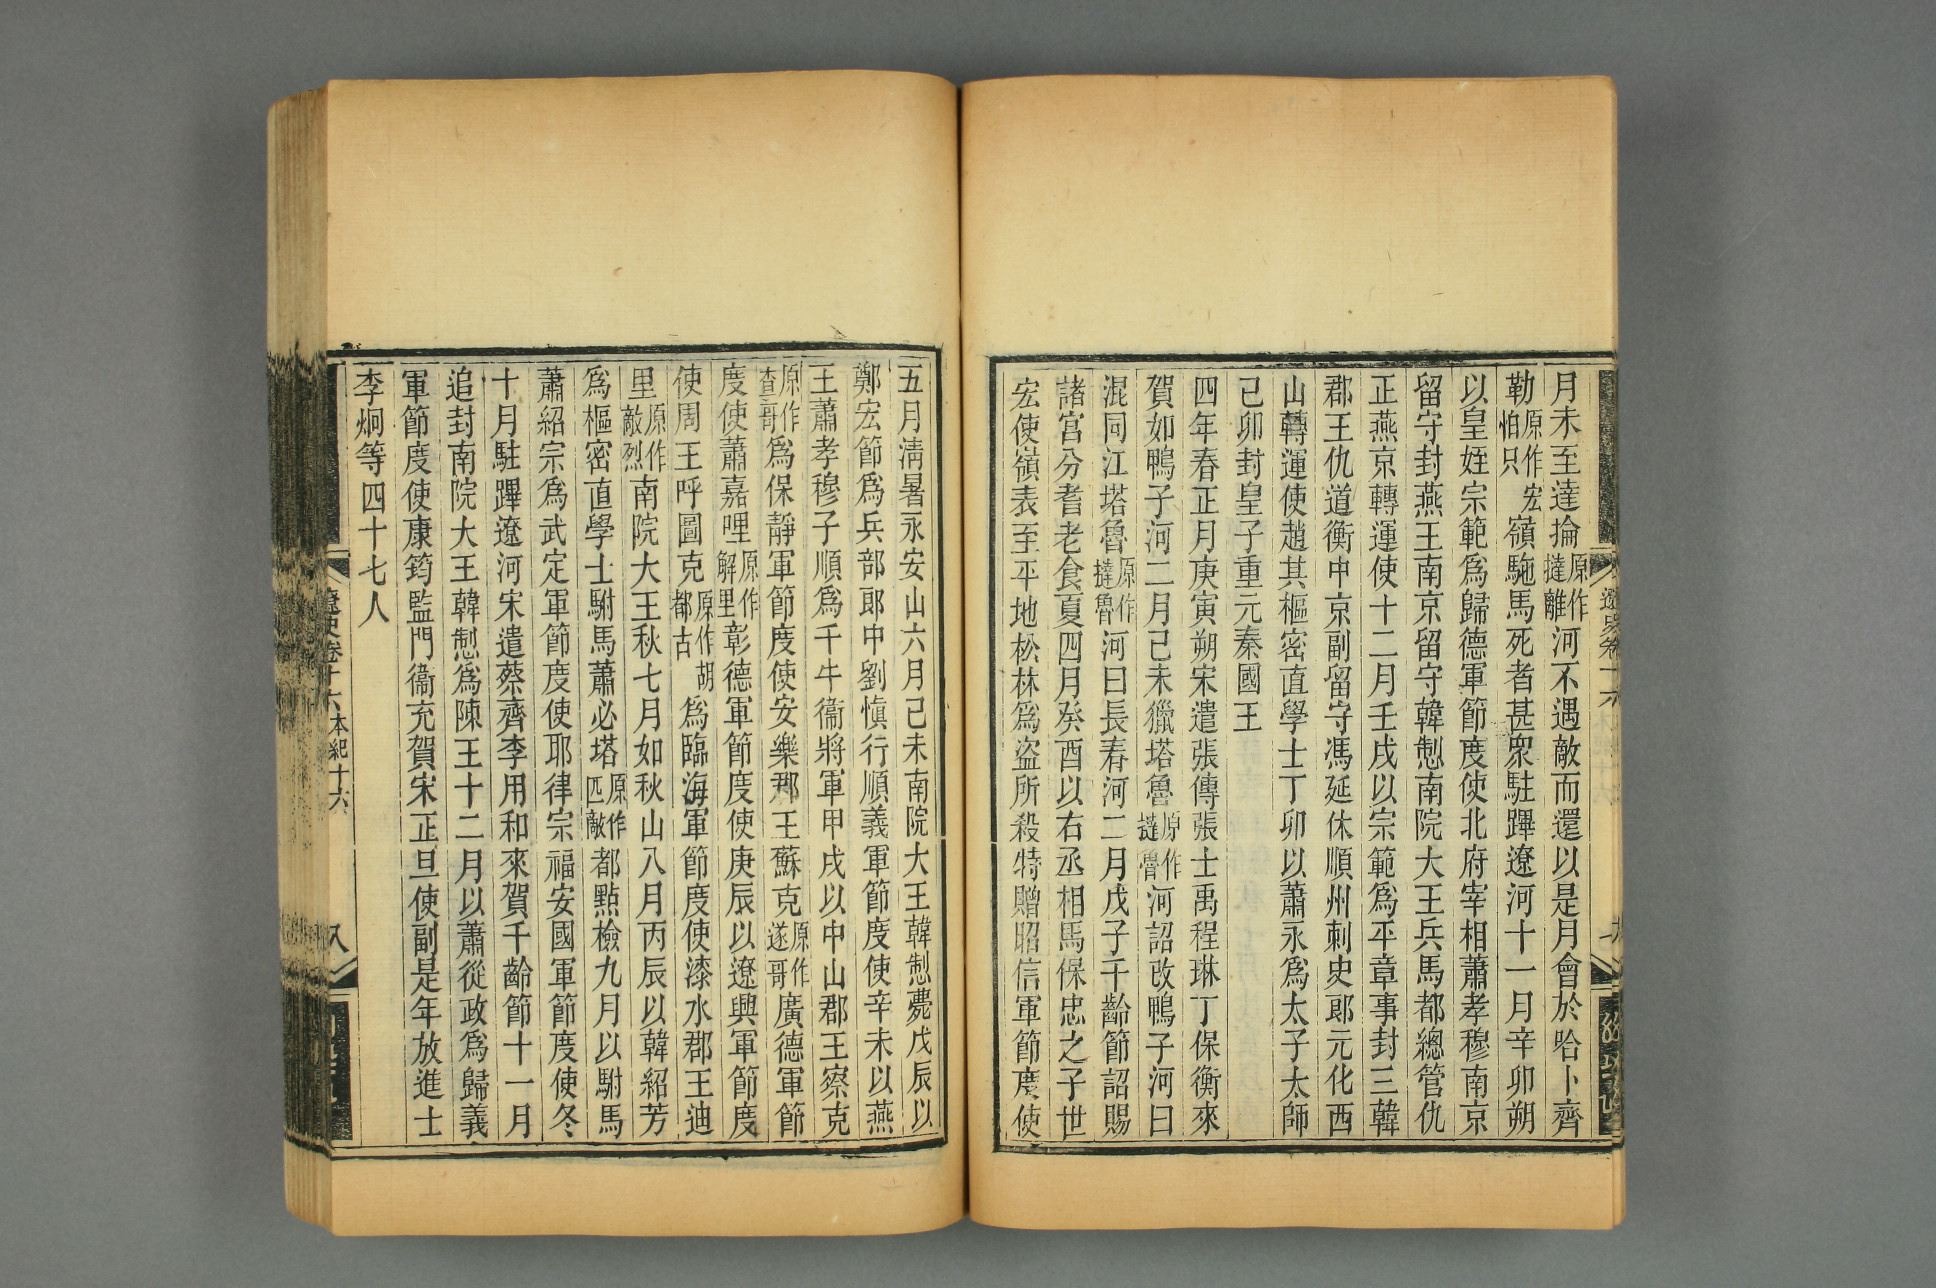 月未至達掄原作撻離河不遇敵而還以是月會於哈卜齊
勒原作宏怕只嶺駞馬死者甚衆駐蹕遼河十一月辛卯朔
以皇姪宗範爲歸德軍節度使北府宰相蕭孝穆南京
留守封燕王南京留守韓制南院大王兵馬都總管仇
正燕京轉運使十二月壬戌以宗範爲平章事封三韓
郡王仇道衡中京副留守馮延休順州刺史郎元化西
山轉運使趙其樞密直學士丁卯以蕭永爲太子太師
己卯封皇子重元秦國王
四年春正月庚寅朔宋遣張傳張士禹程琳丁保衡來
賀如鴨子河二月己未獵塔魯原作撻魯河詔改鴨子河曰
混同江塔魯原作撻魯河曰長春河二月戊子千齡節詔賜
諸宮分耆老食夏四月癸酉以右丞相馬保忠之子世
宏使嶺表至平地松林爲盜所殺特贈昭信軍節度使
遼史卷十六
五月淸暑永安山六月己未南院大王韓制薨戊辰以
鄭宏節爲兵部郎中劉愼行順義軍節度使辛未以燕
王蕭孝穆子順爲千牛衞將軍甲戌以中山郡王察克
原作查哥爲保靜軍節度使安樂郡王蘇克原作遂哥廣德軍節
度使蕭嘉哩原作解里彰德軍節度使庚辰以遼興軍節度
使周王呼圖克原作胡都古爲臨海軍節度使漆水郡王迪
里原作敵烈南院大王秋七月如秋山八月丙辰以韓紹芳
爲樞密直學士駙馬蕭必塔原作匹敵都點檢九月以駙馬
蕭紹宗爲武定軍節度使耶律宗福安國軍節度使冬
十月駐蹕遼河宋遣蔡齊李用和來賀千齡節十一月
追封南院大王韓制爲陳王十二月以蕭從政爲歸義
軍節度使康筠監門衞充賀宋正旦使副是年放進士
李炯等四十七人
遼史卷十六 本紀十六 八